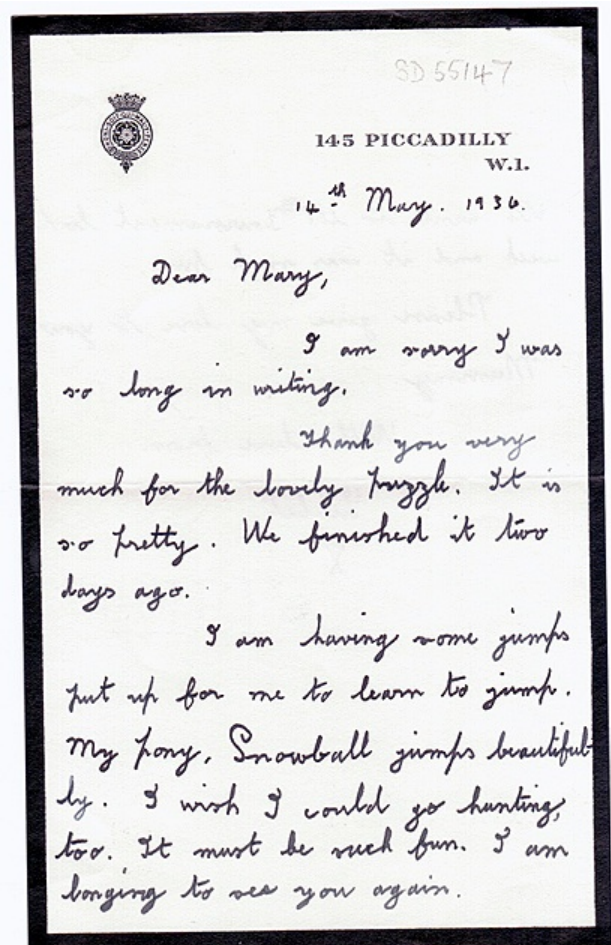 SD 55147
145 PICCADILLY
W.1.
14th May. 1936.
Dear Mary,
I am sorry I was
so long in writing.
Thank you very
much for the lovely puzzle. It is
so pretty. We finished it two
days ago.
I am having some jumps
put up for me to learn to jump.
My pony, Snowball jumps beautiful-
ly. I wish I could go hunting,
too. It must be such fun. I am
longing to see you again.